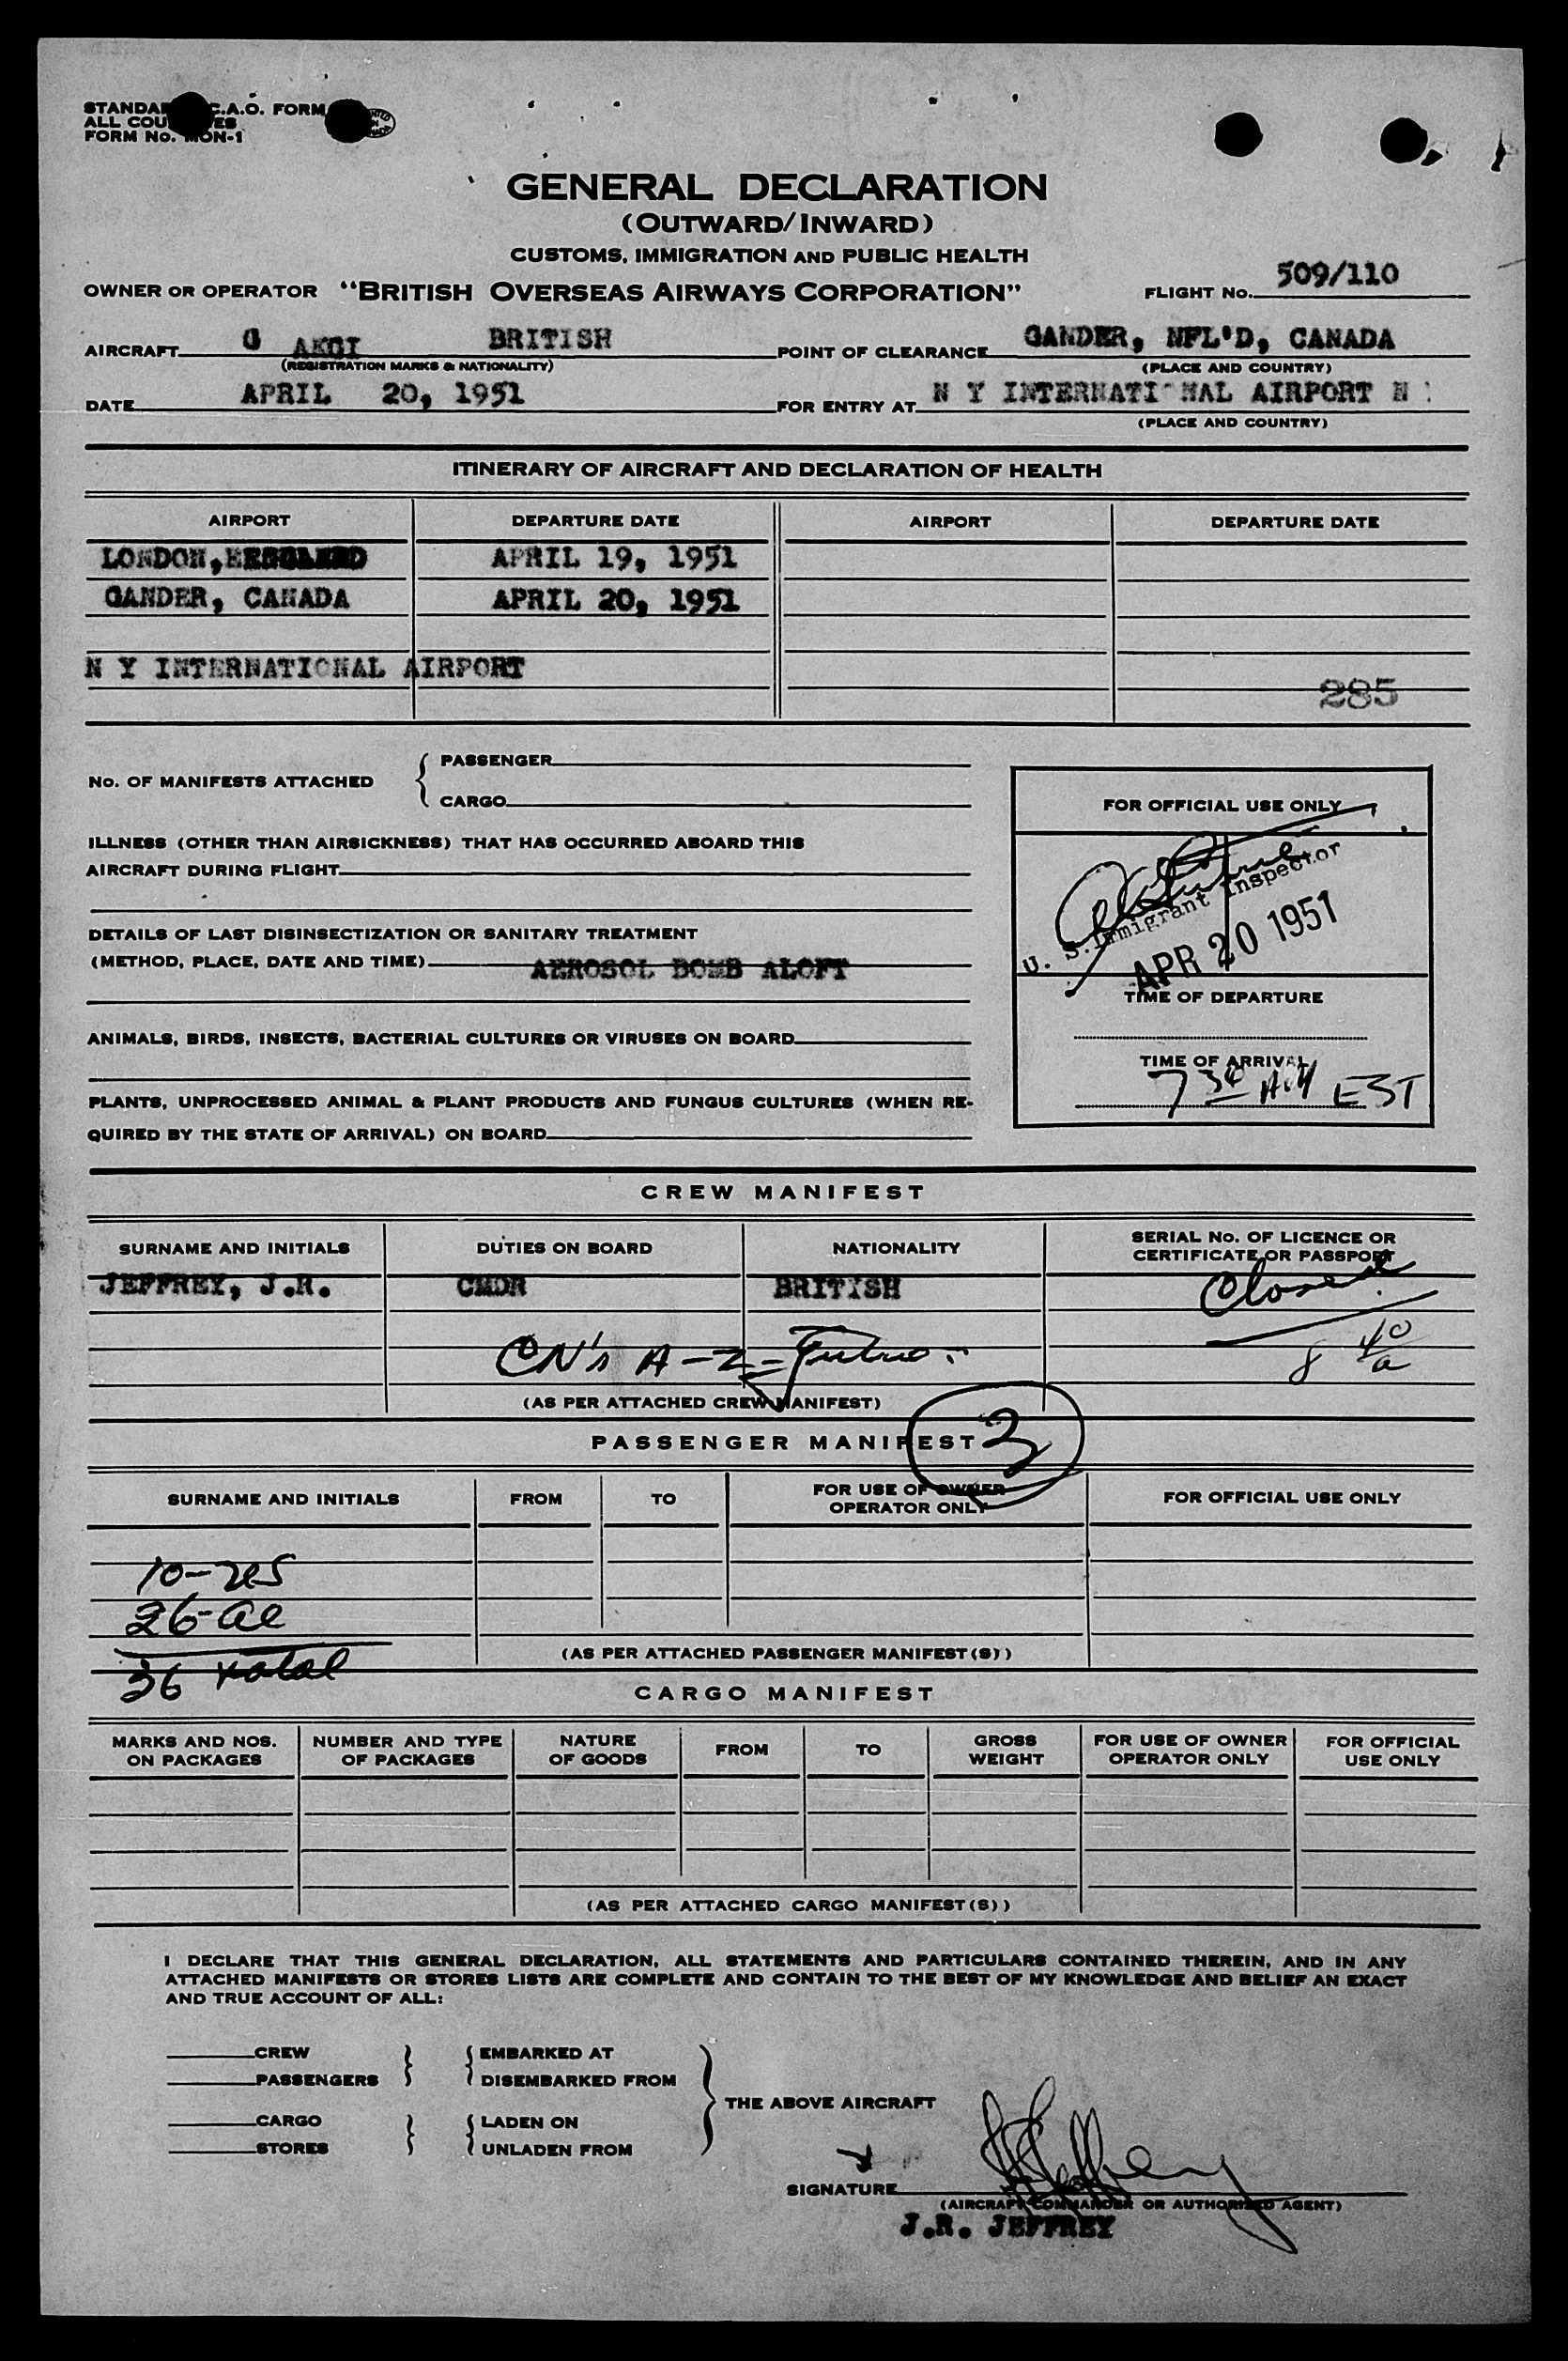 STANDA C.A.O. FORM
ALL COU ES
FORM NO. MON-1
GENERAL DECLARATION
(OUTWARD/INWARD)
CUSTOMS, IMMIGRATION AND PUBLIC HEALTH
OWNER OR OPERATOR "BRITISH OVERSEAS AIRWAYS CORPORATION" FLIGHT No. 509/110
AIRCRAFT G AKGI BRITISH POINT OF CLEARANCE GANDER, NFL'D, CANADA
(REGISTRATION MARKS & NATIONALITY) (PLACE AND COUNTRY)
DATE APRIL 20, 1951 FOR ENTRY AT N Y INTERNATIONAL AIRPORT N
(PLACE AND COUNTRY)
ITINERARY OF AIRCRAFT AND DECLARATION OF HEALTH
AIRPORT DEPARTURE DATE AIRPORT DEPARTURE DATE
LONDON, APRIL 19, 1951
GANDER, CANADA APRIL 20, 1951
N Y INTERNATIONAL AIRPORT
285
No. OF MANIFESTS ATTACHED { PASSENGER
CARGO
FOR OFFICIAL USE ONLY
ILLNESS (OTHER THAN AIRSICKNESS) THAT HAS OCCURRED ABOARD THIS
AIRCRAFT DURING FLIGHT
U. S. Immigrant Inspector
APR 20 1951
DETAILS OF LAST DISINSECTIZATION OR SANITARY TREATMENT
(METHOD, PLACE, DATE AND TIME) AEROSOL BOMB ALOFT
TIME OF DEPARTURE
ANIMALS, BIRDS, INSECTS, BACTERIAL CULTURES OR VIRUSES ON BOARD
TIME OF ARRIVAL
7 30 AM EST
PLANTS, UNPROCESSED ANIMAL & PLANT PRODUCTS AND FUNGUS CULTURES (WHEN RE-
QUIRED BY THE STATE OF ARRIVAL) ON BOARD
CREW MANIFEST
SURNAME AND INITIALS DUTIES ON BOARD NATIONALITY SERIAL No. OF LICENCE OR
CERTIFICATE OR PASSPORT
JEFFREY, J.R. CMDR BRITISH Closed
8 40/a
CN's A-2=
(AS PER ATTACHED CREW MANIFEST)
PASSENGER MANIFEST 3
SURNAME AND INITIALS FROM TO FOR USE OF OWNER
OPERATOR ONLY FOR OFFICIAL USE ONLY
10-
26-al
36 total
(AS PER ATTACHED PASSENGER MANIFEST(S))
CARGO MANIFEST
MARKS AND NOS.
ON PACKAGES NUMBER AND TYPE
OF PACKAGES NATURE
OF GOODS FROM TO GROSS
WEIGHT FOR USE OF OWNER
OPERATOR ONLY FOR OFFICIAL
USE ONLY
(AS PER ATTACHED CARGO MANIFEST(S))
I DECLARE THAT THIS GENERAL DECLARATION, ALL STATEMENTS AND PARTICULARS CONTAINED THEREIN, AND IN ANY
ATTACHED MANIFESTS OR STORES LISTS ARE COMPLETE AND CONTAIN TO THE BEST OF MY KNOWLEDGE AND BELIEF AN EXACT
AND TRUE ACCOUNT OF ALL:
CREW } { EMBARKED AT
PASSENGERS DISEMBARKED FROM
THE ABOVE AIRCRAFT
CARGO } { LADEN ON
STORES UNLADEN FROM
SIGNATURE J R Jeffrey
(AIRCRAFT COMMANDER OR AUTHORIZED AGENT)
J.R. JEFFREY